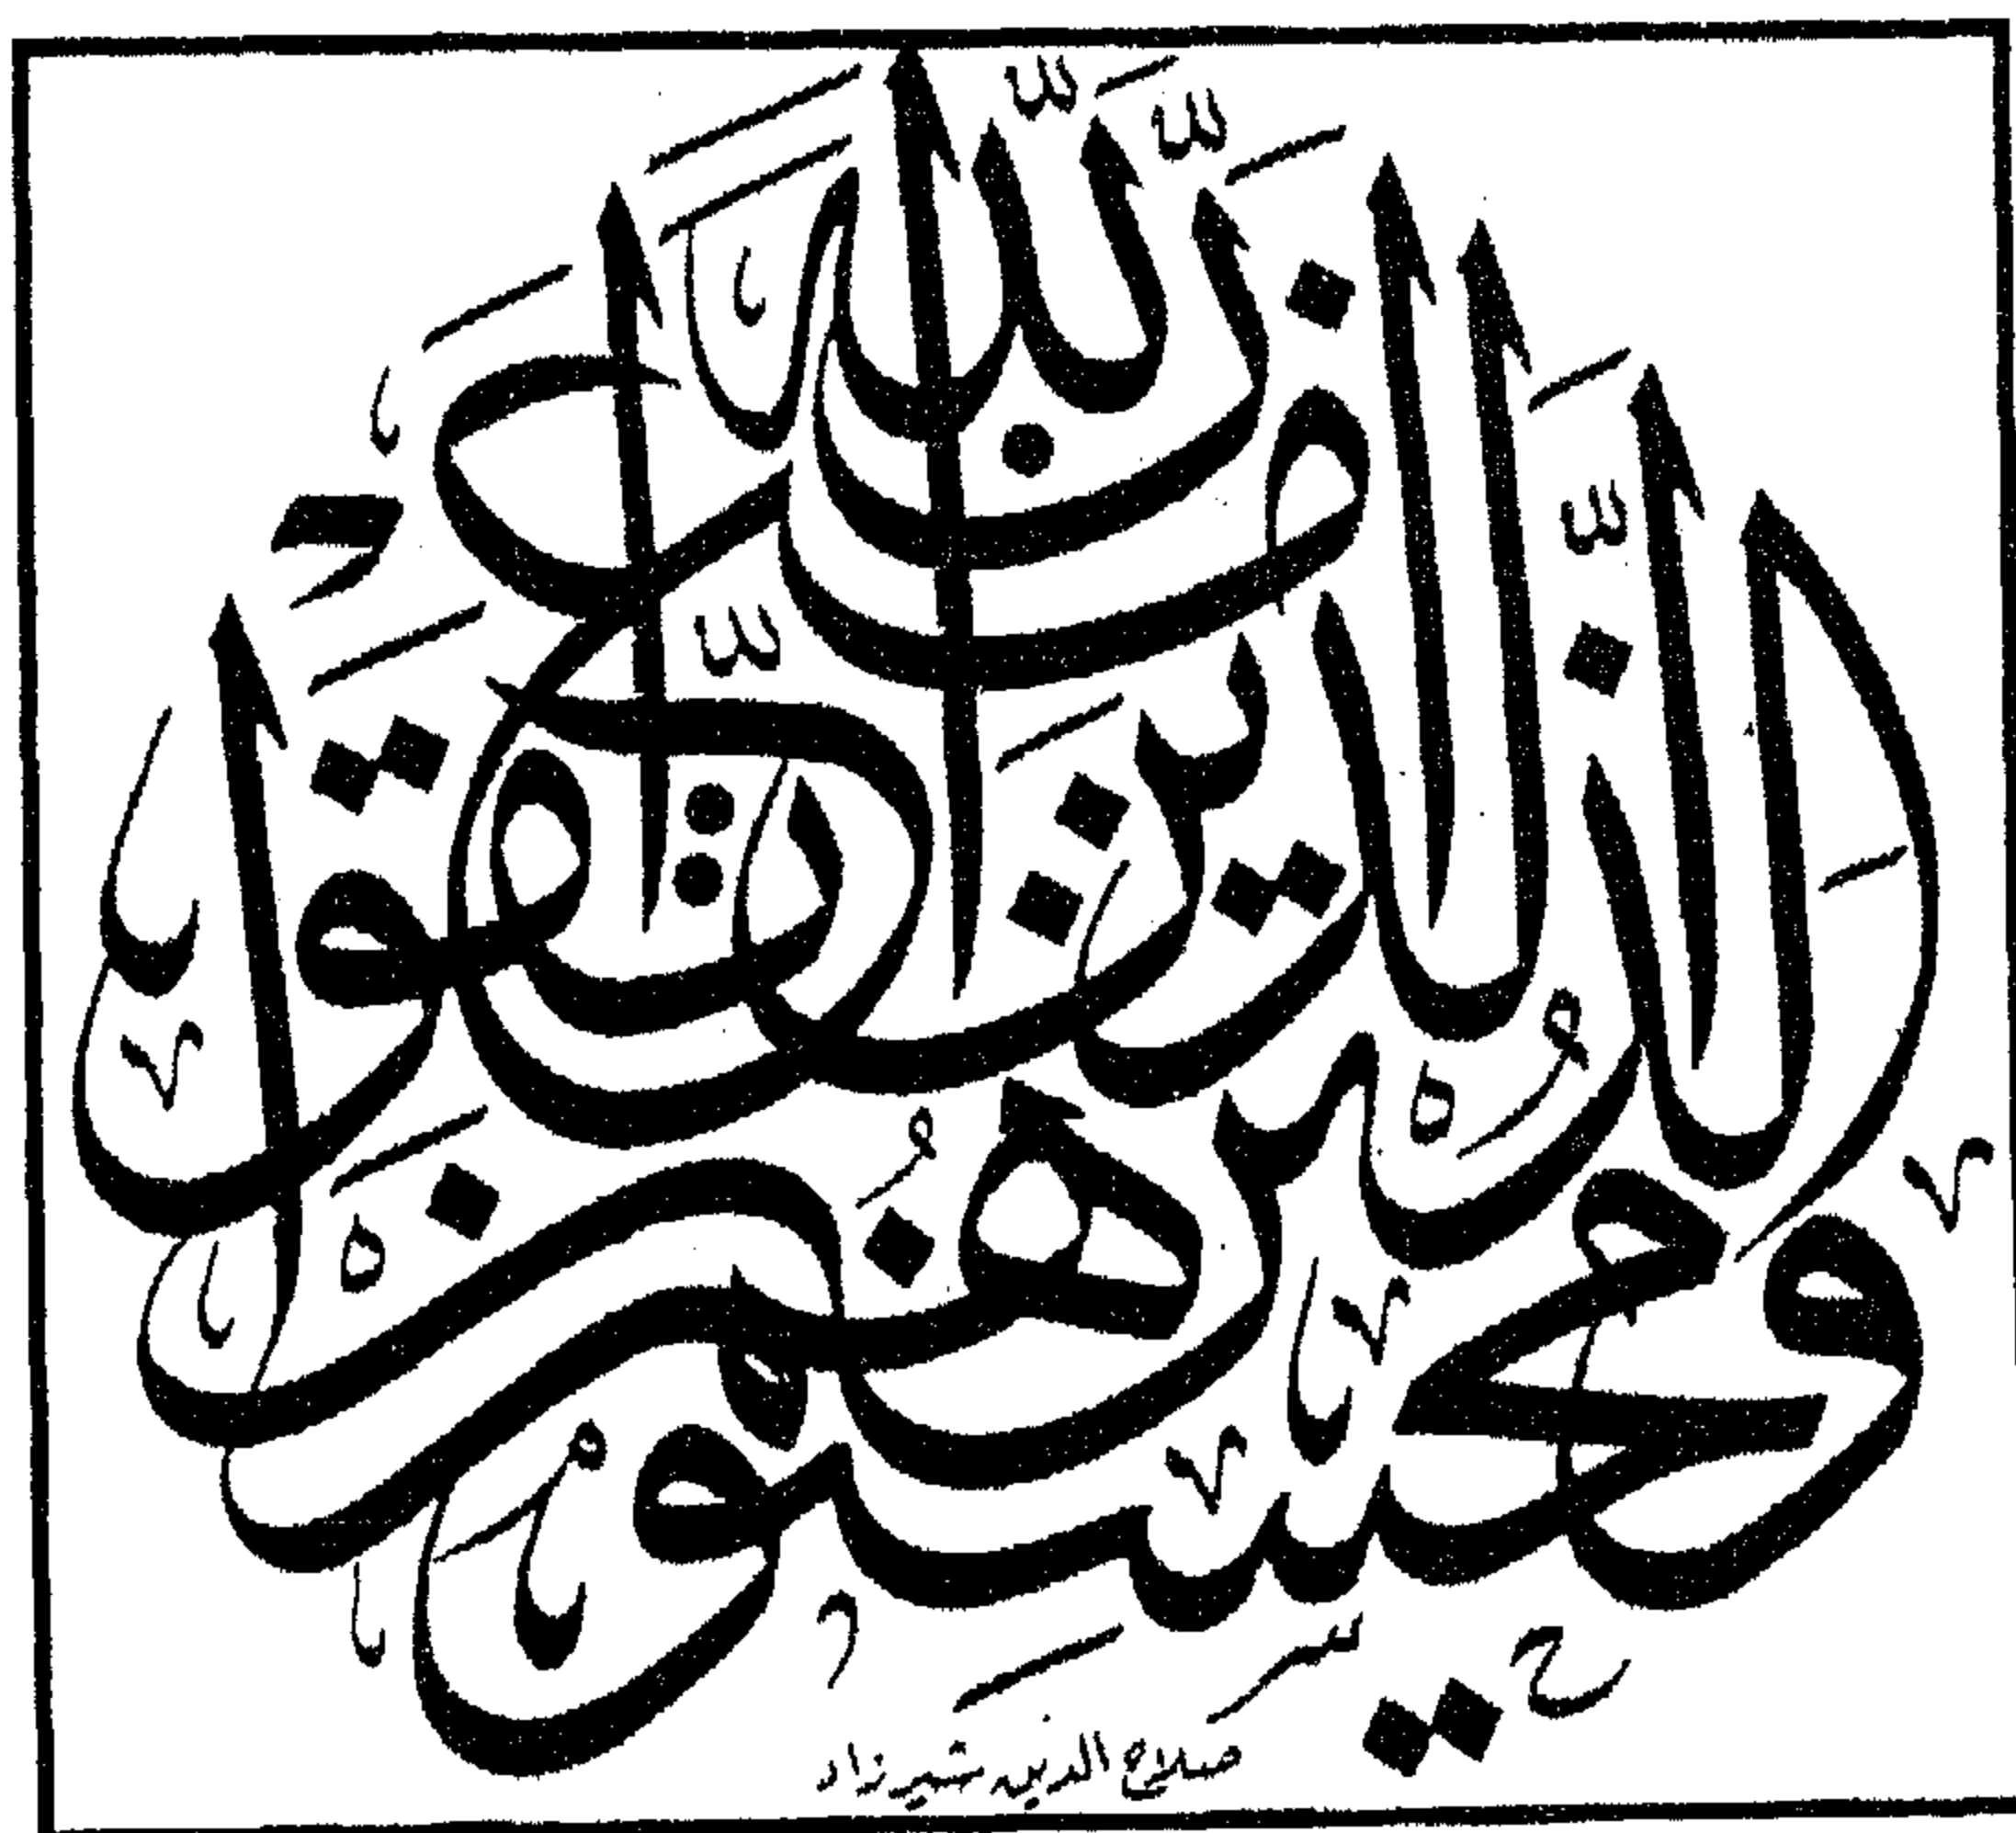 إن الله مع الذين اتقوا والذين هم محسنون
صلاح الدين شيرزاد